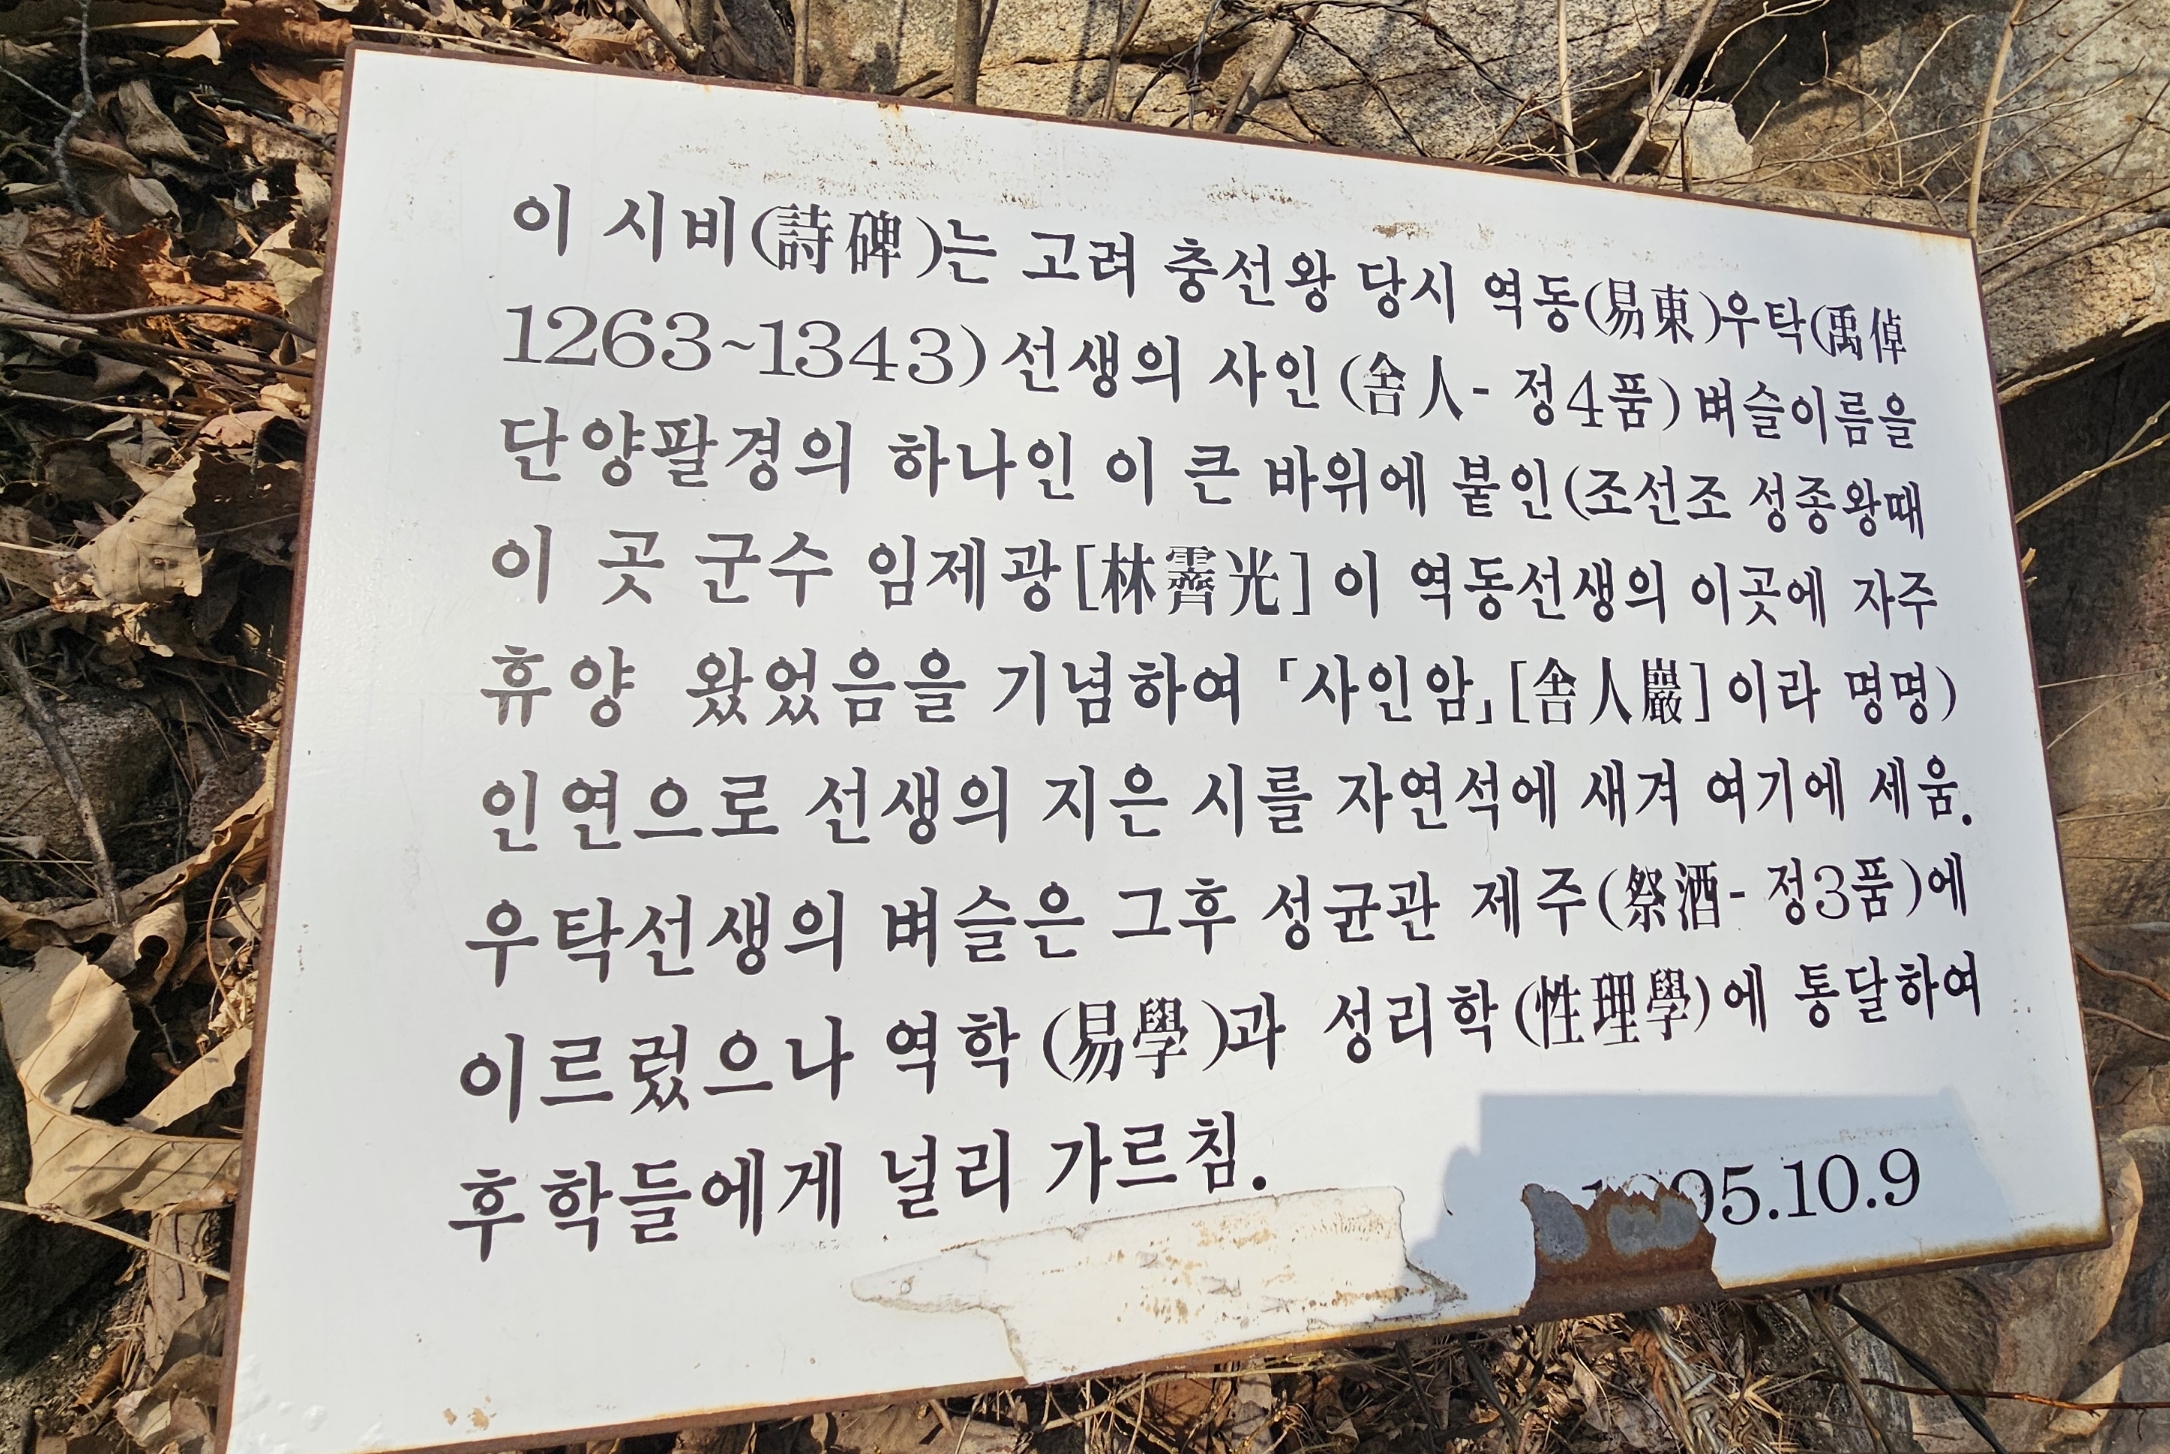 이 시비(詩碑)는 고려 충선왕 당시 역동(易東)우탁(禹倬
1263~1343)선생의 사인(舍人- 정4품)벼슬이름을
단양팔경의 하나인 이 큰 바위에 붙인(조선조 성종왕때
이 곳 군수 임제광[林霽光]이 역동선생의 이곳에 자주
휴양 왔었음을 기념하여 「사인암」[舍人巖]이라 명명)
인연으로 선생의 지은 시를 자연석에 새겨 여기에 세움.
우탁선생의 벼슬은 그후 성균관 제주(祭酒- 정3품)에
이르렀으나 역학(易學)과 성리학(性理學)에 통달하여
후학들에게 널리 가르침.
1995.10.9